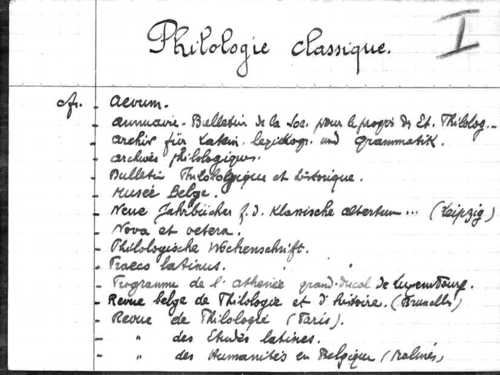 Philologie classique.
I
cfr. - Aevum.
- Annuaire - Bulletin de la Soc. pour le progrès des Et. Philolog...
- Archiv für Latein. lexikogr. und Grammatik.
- Archives philologiques.
- Bulletin Philologique et historique.
- Musée Belge.
- Neue Jahrbücher f. d. Klassische altertum ... (Leipzig)
- Nova et vetera.
- Philologische Wochenschrift.
- latinus.
- Programme de l'athénée grand-ducal de Luxembourg.
- Revue belge de Philologie et d'histoire. (Bruxelles)
- Revue de Philologie (Paris).
- " des Etudes latines.
- " des Humanités en Belgique (Malines)